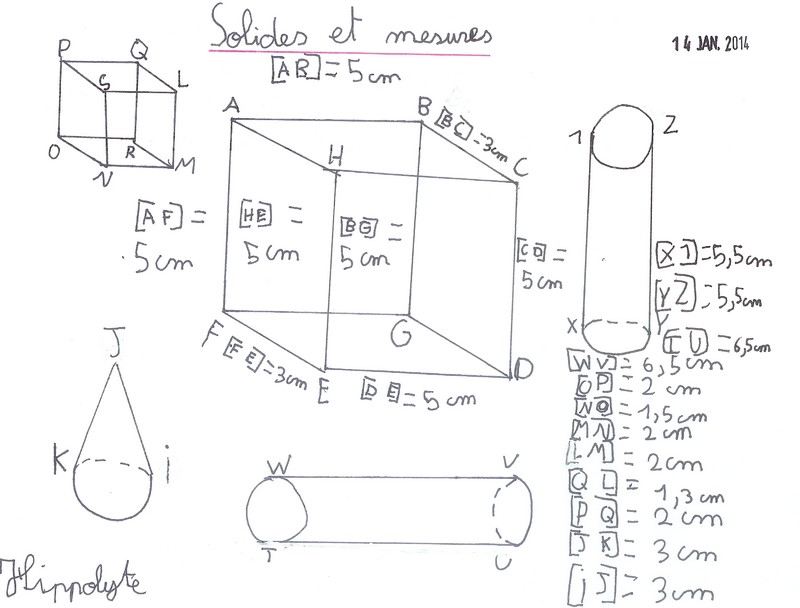 Solides et mesures
14 JAN. 2014
[AB] = 5 cm
P Q
S L
O R
N M
A B [BC] = 3 cm
H C
[AF] = 5 cm
[HE] = 5 cm
[BG] = 5 cm
[CD] = 5 cm
F [FE] = 3 cm
G
E [DE] = 5 cm D
1 Z
X Y
[X1] = 5,5 cm
[YZ] = 5,5 cm
[TU] = 6,5 cm
[WV] = 6,5 cm
[OP] = 2 cm
[NO] = 1,5 cm
[MN] = 2 cm
[LM] = 2 cm
[QL] = 1,3 cm
[PQ] = 2 cm
[JK] = 3 cm
[iJ] = 3 cm
J
K i
W V
T U
Hippolyte